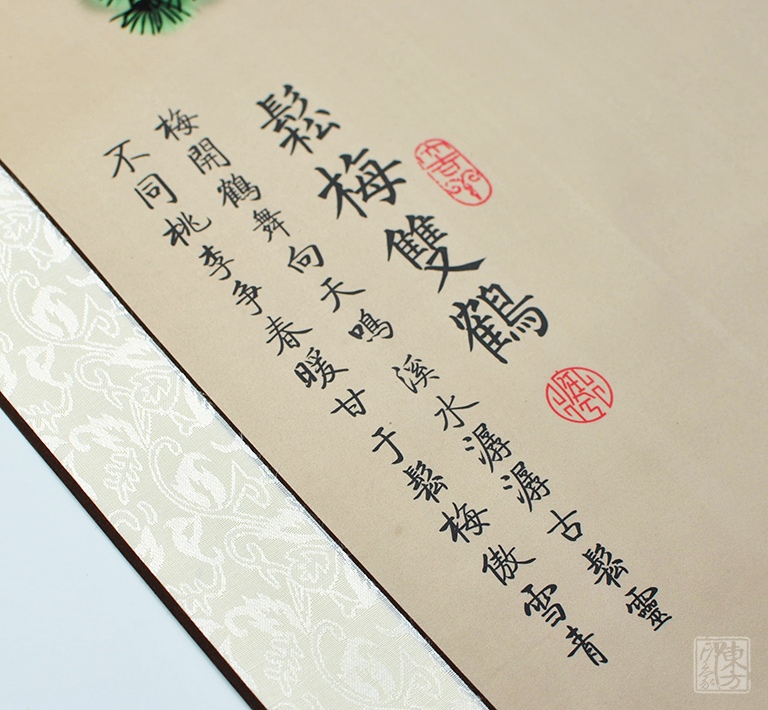 鬆梅雙鶴
梅開鶴舞向天鳴 溪水潺潺古鬆靈
不同桃李爭春暖 甘于鬆梅傲雪青
東方